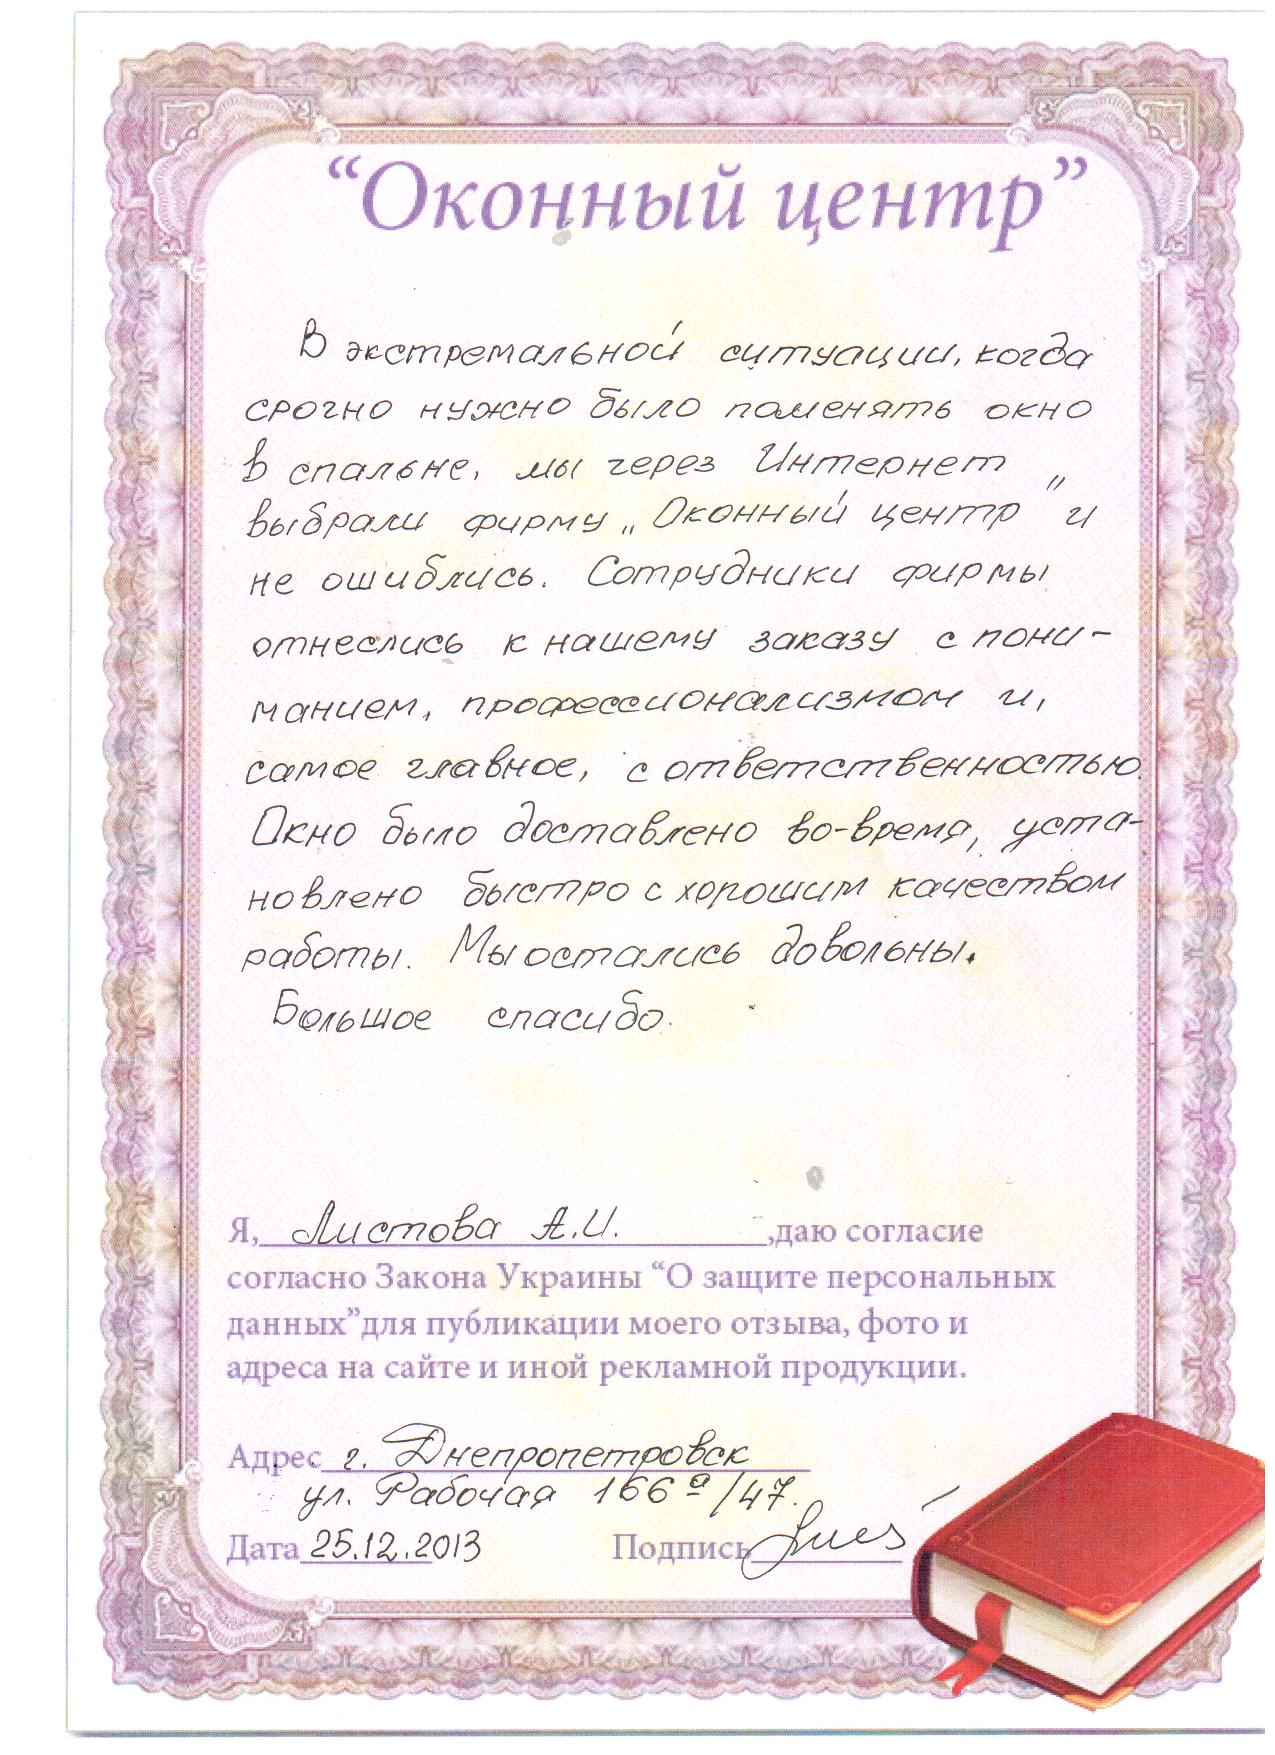 “Оконный центр”
В экстремальной ситуации, когда
срочно нужно было поменять окно
в спальне, мы через Интернет
выбрали фирму „Оконный центр" и
не ошиблись. Сотрудники фирмы
отнеслись к нашему заказу с пони-
манием, профессионализмом и,
самое главное, с ответственностью.
Окно было доставлено во-время, уста-
новлено быстро с хорошим качеством
работы. Мы остались довольны.
Большое спасибо.
Я, Листова А.И. ,даю согласие
согласно Закона Украины “О защите персональных
данных”для публикации моего отзыва, фото и
адреса на сайте и иной рекламной продукции.
Адрес г. Днепропетровск
ул. Рабочая 166а/47.
Дата 25.12.2013 Подпись